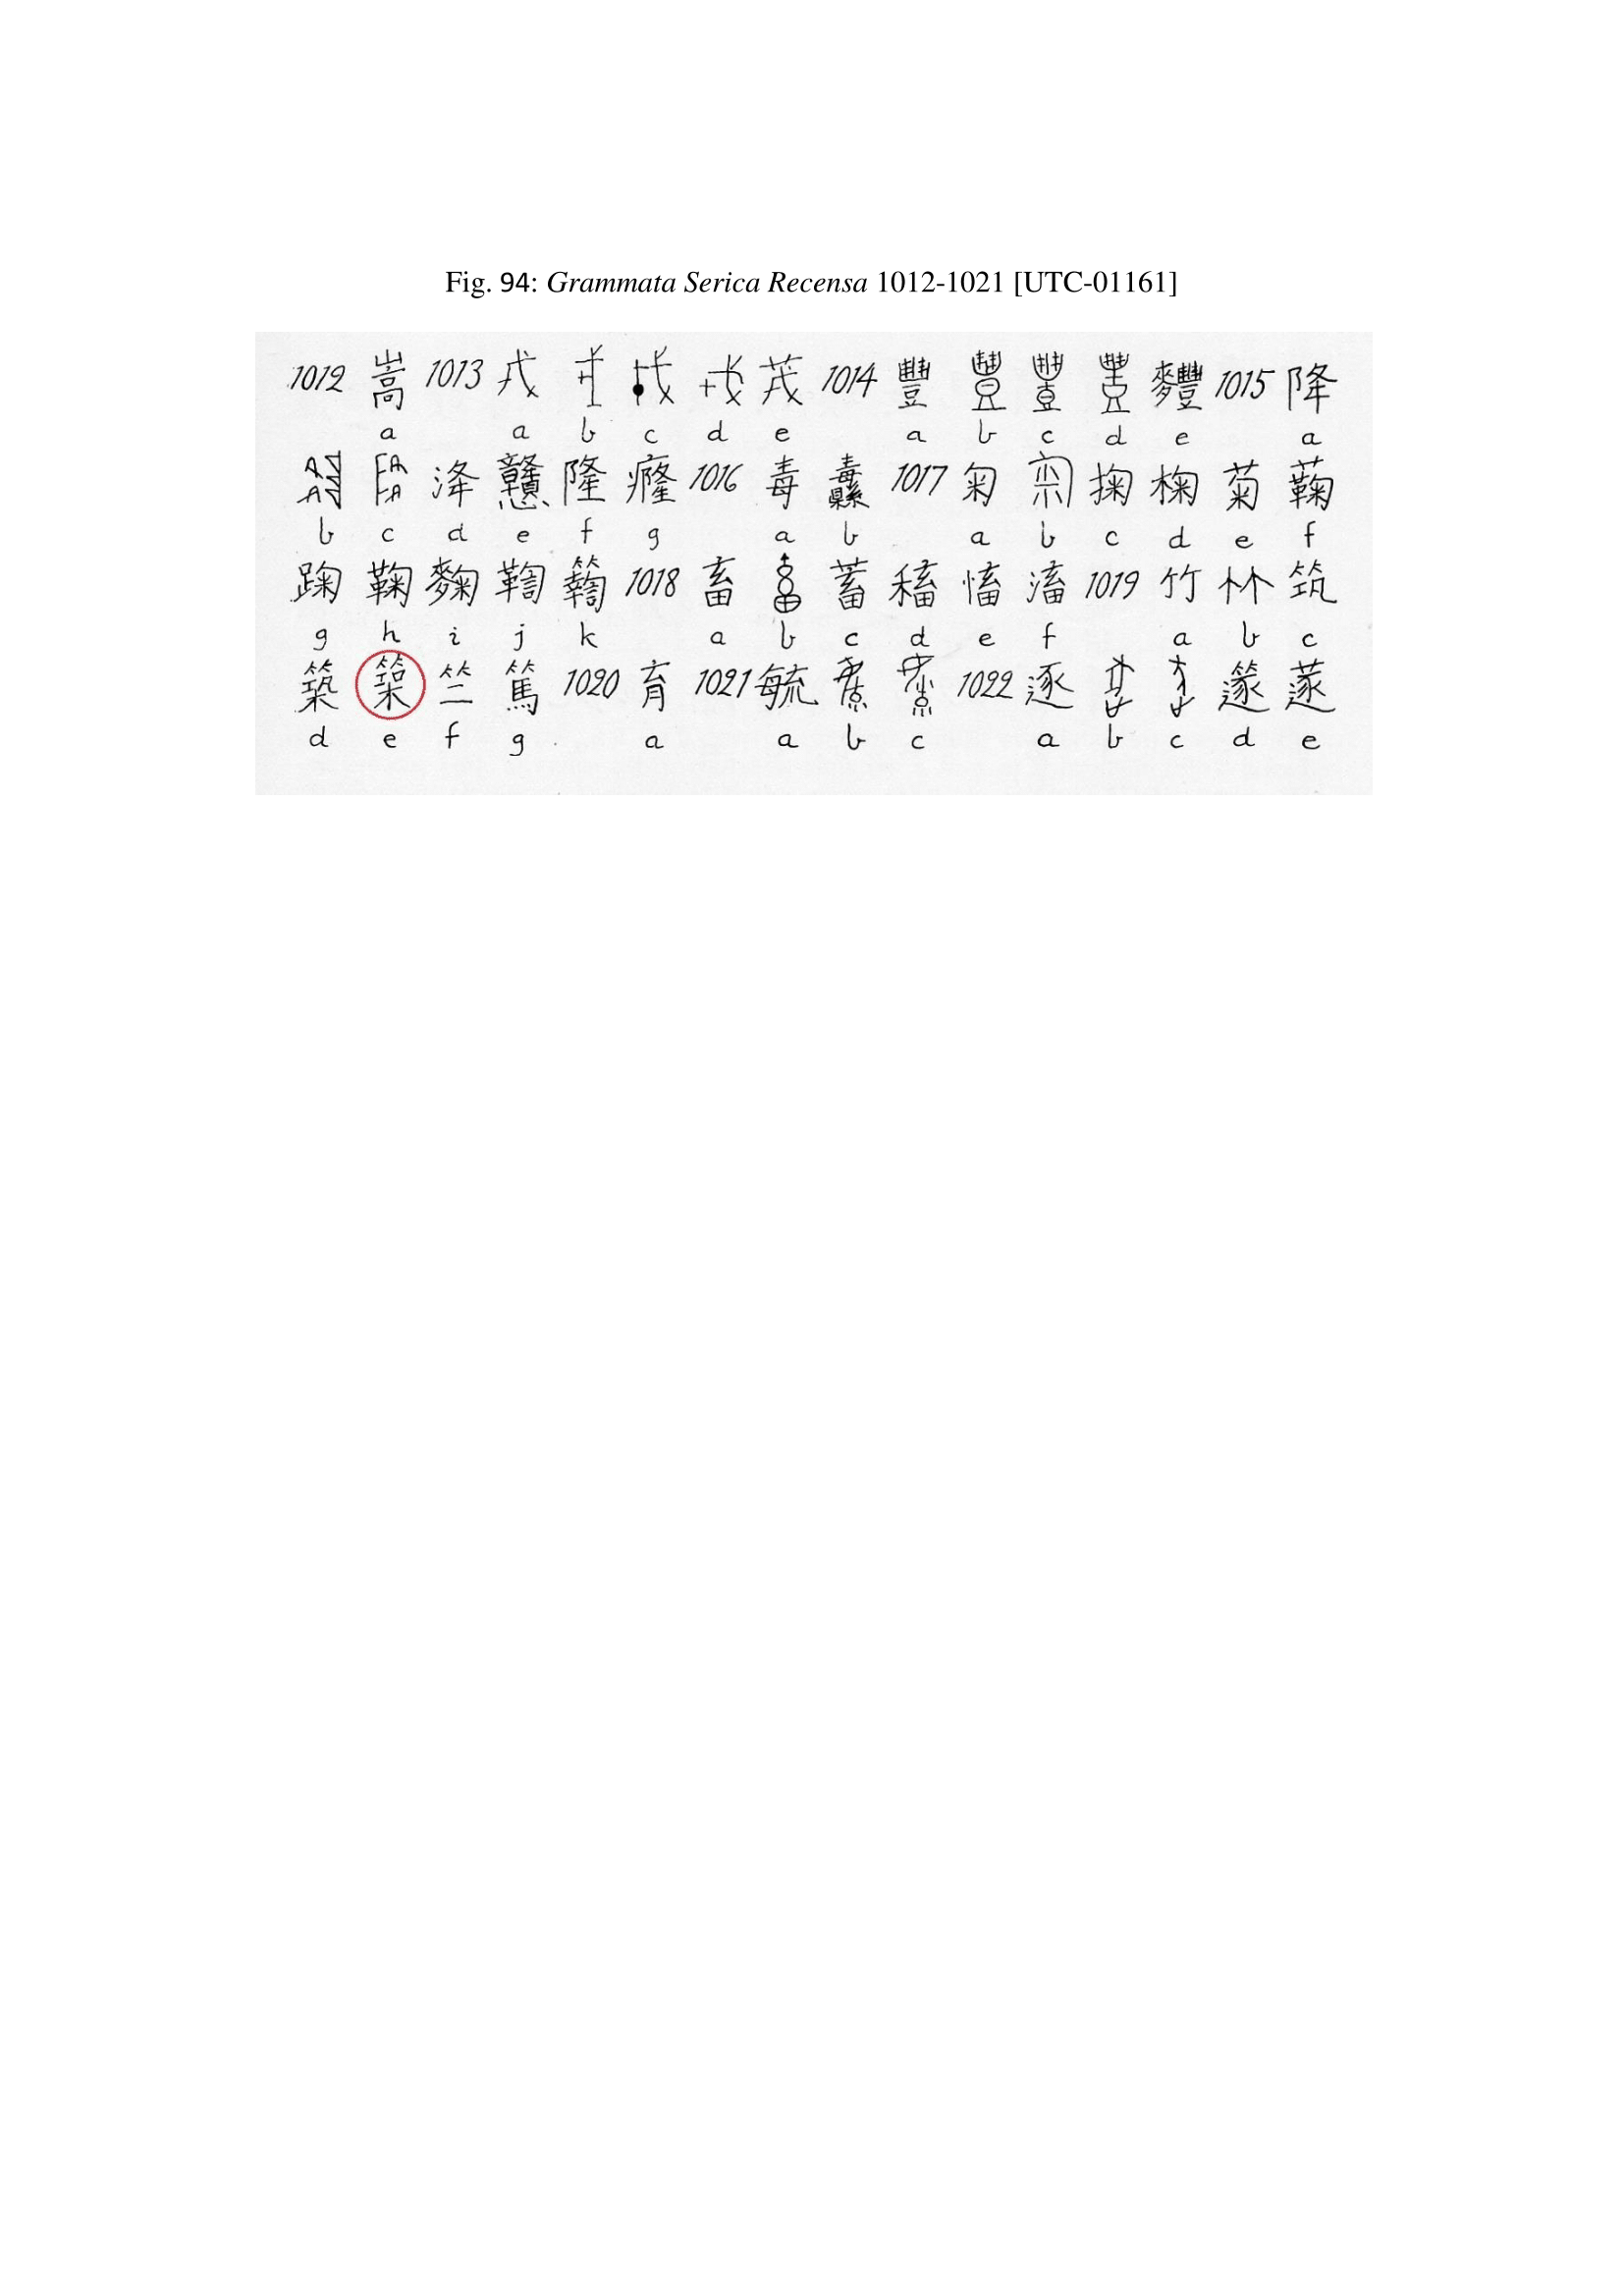 Fig. 94: Grammata Serica Recensa 1012-1021 [UTC-01161]
1012 嵩 1013 戎 茙 1014 豐 麷 1015 降
a a b c d e a b c d e a
洚 戇 隆 癃 1016 毒 纛 1017 匊 掬 椈 菊 蘜
b c d e f g a b a b c d e f
踘 鞠 麴 鞫 1018 畜 蓄 稸 慉 滀 1019 竹 筑
g h i j k a b c d e f a b c
築 竺 篤 1020 育 1021 毓 1022 逐 蓫
d e f g a a b c a b c d e